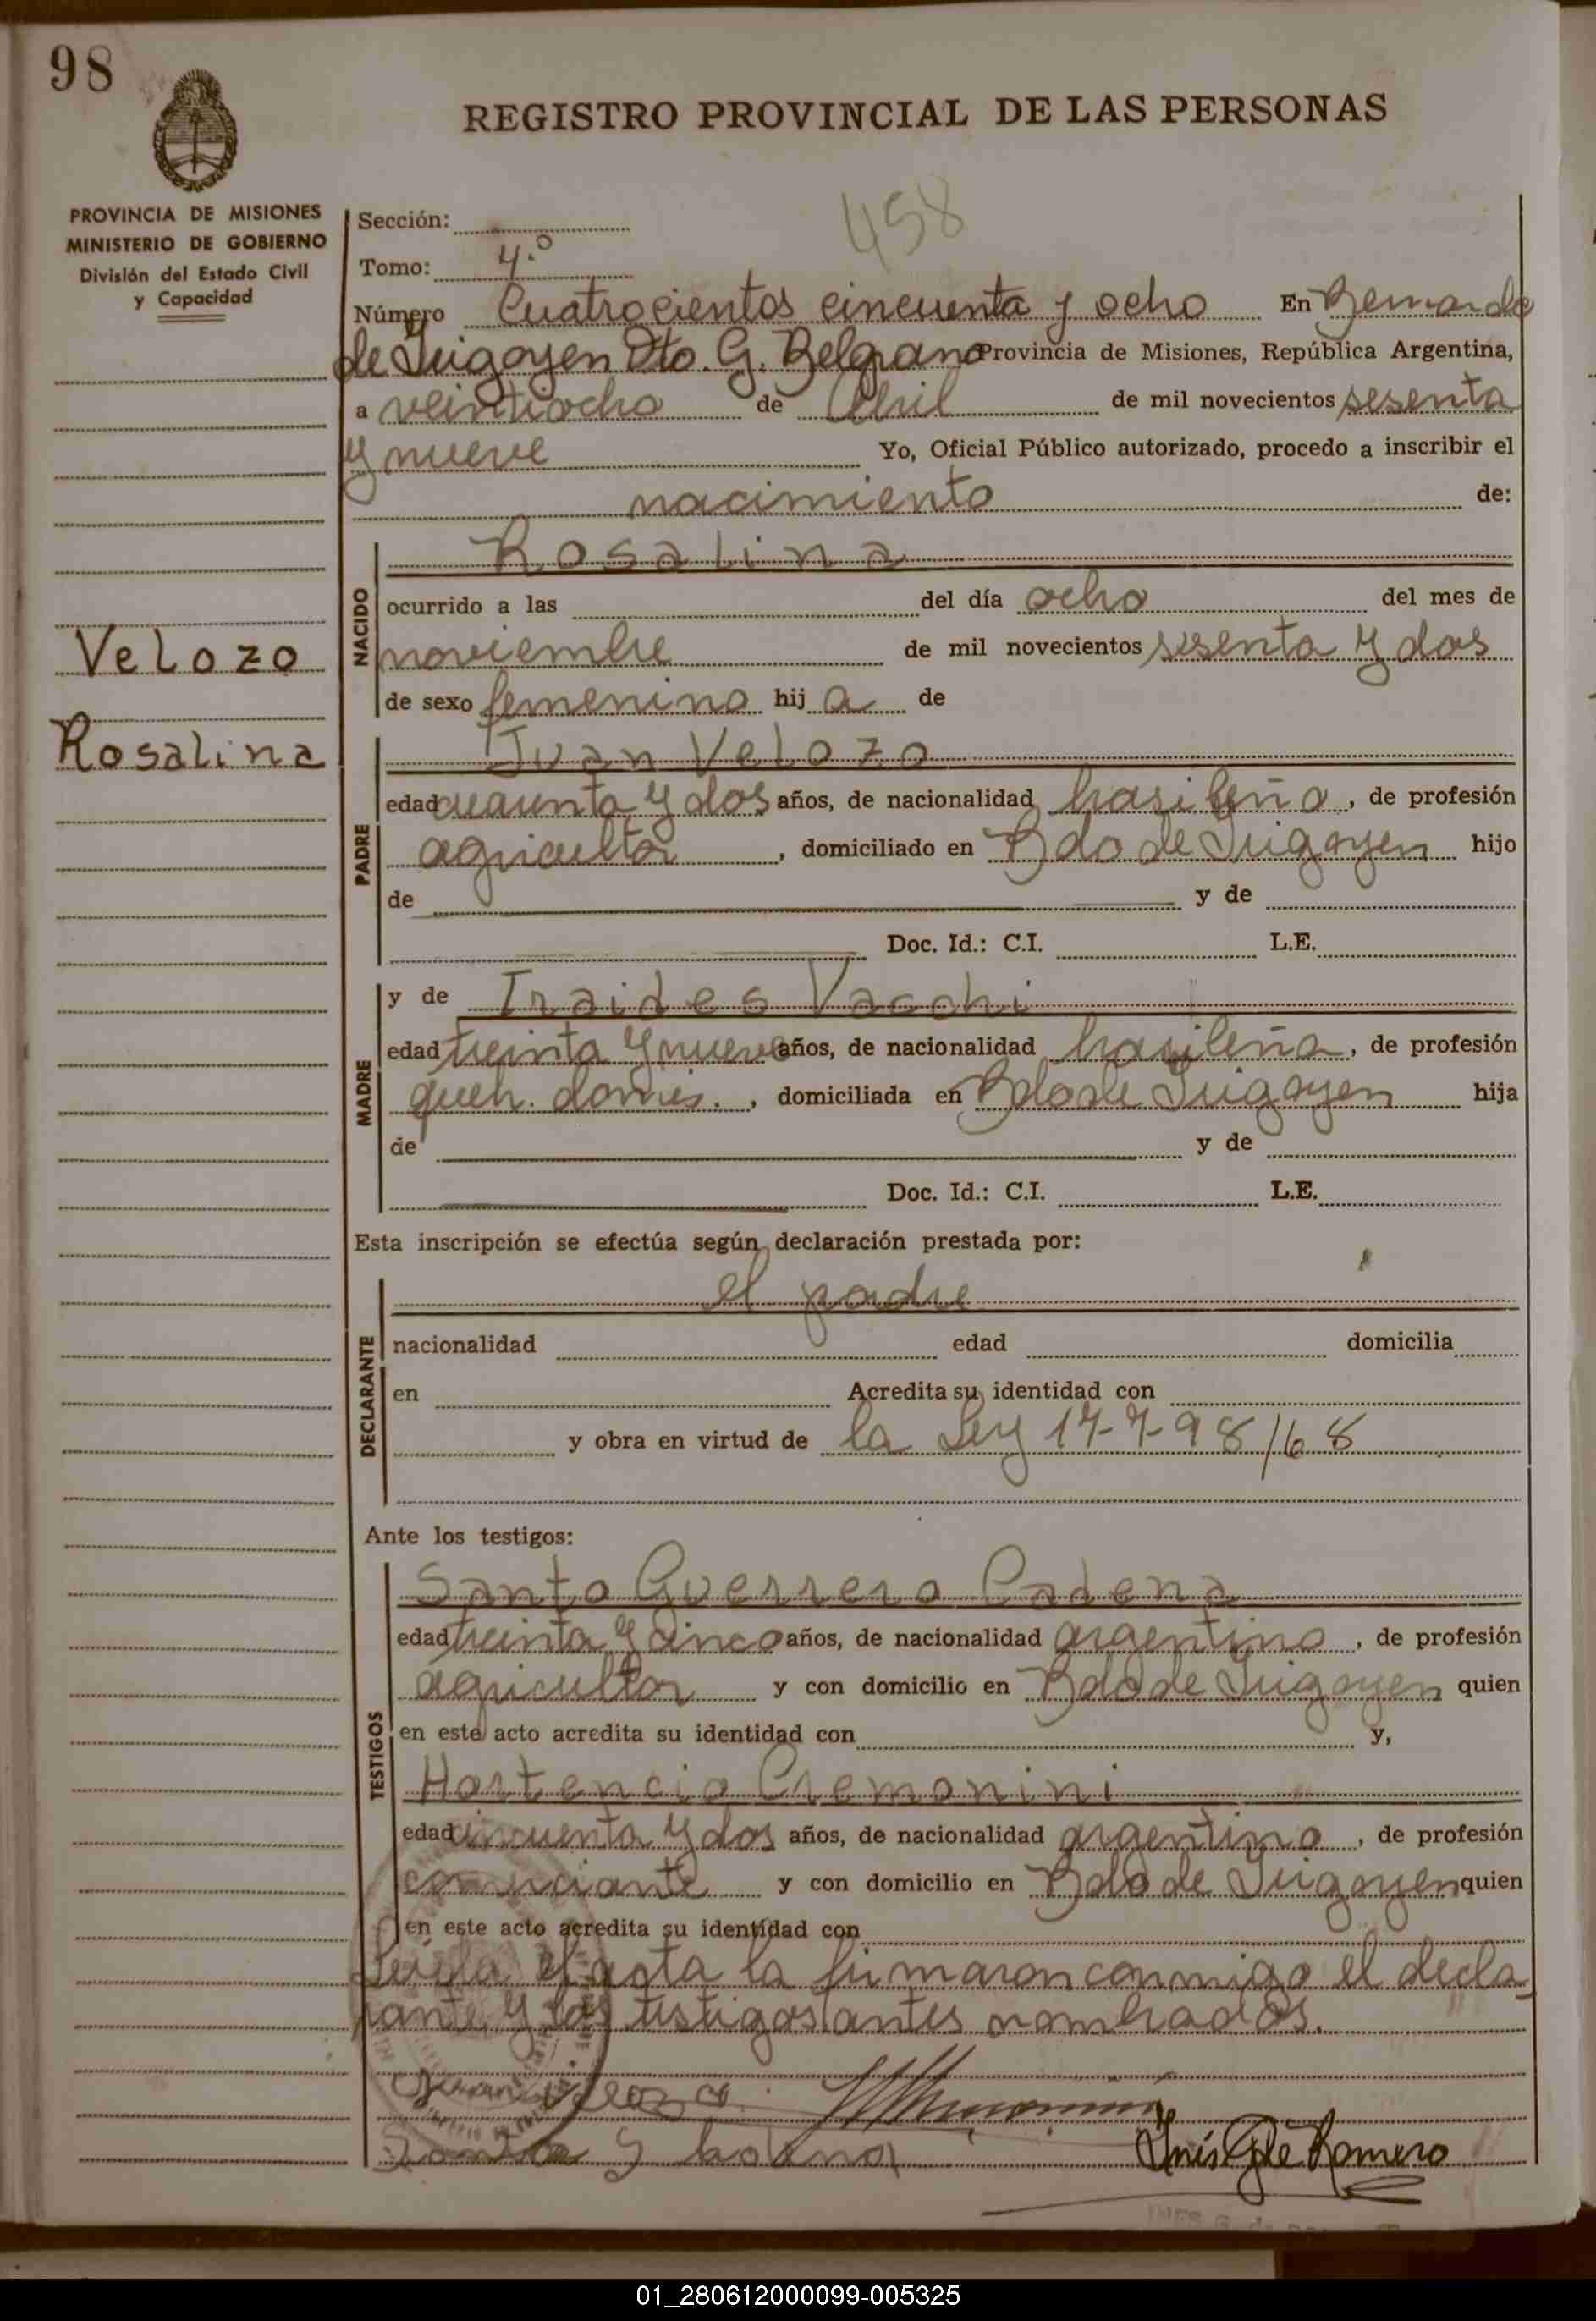 98
REGISTRO PROVINCIAL DE LAS PERSONAS
PROVINCIA DE MISIONES
MINISTERIO DE GOBIERNO
División del Estado Civil
y Capacidad
458
Sección:
Tomo: 4.º
Número Cuatrocientos cincuenta y ocho En Bernardo
de Irigoyen Dto. G. Belgrano Provincia de Misiones, República Argentina,
a veintiocho de Abril de mil novecientos sesenta
y nueve Yo, Oficial Público autorizado, procedo a inscribir el
nacimiento de:
Velozo
Rosalina
NACIDO
Rosalina
ocurrido a las del día ocho del mes de
noviembre de mil novecientos sesenta y dos
de sexo femenino hij a de
PADRE
Juan Velozo
edad cuarenta y dos años, de nacionalidad brasileño, de profesión
agricultor, domiciliado en Bdo de Irigoyen hijo
de y de
Doc. Id.: C.I. L.E.
MADRE
y de Iraides Vacchi
edad treinta y nueve años, de nacionalidad brasileña, de profesión
queh. domés., domiciliada en Bdo de Irigoyen hija
de y de
Doc. Id.: C.I. L.E.
Esta inscripción se efectúa según declaración prestada por:
DECLARANTE
el padre
nacionalidad edad domicilia
en Acredita su identidad con
y obra en virtud de la Ley 17-7-98/68
Ante los testigos:
TESTIGOS
Santo Guerrero Cadena
edad treinta y cinco años, de nacionalidad argentino, de profesión
agricultor y con domicilio en Bdo de Irigoyen quien
en este acto acredita su identidad con y,
Hortencio Cremonini
edad cincuenta y dos años, de nacionalidad argentino, de profesión
comerciante y con domicilio en Bdo de Irigoyen quien
en este acto acredita su identidad con
Leída el acta la firmaron conmigo el decla
rante y los testigos antes nombrados.
Juan Velozo
Santo G
Inés G de Romero
01_280612000099-005325